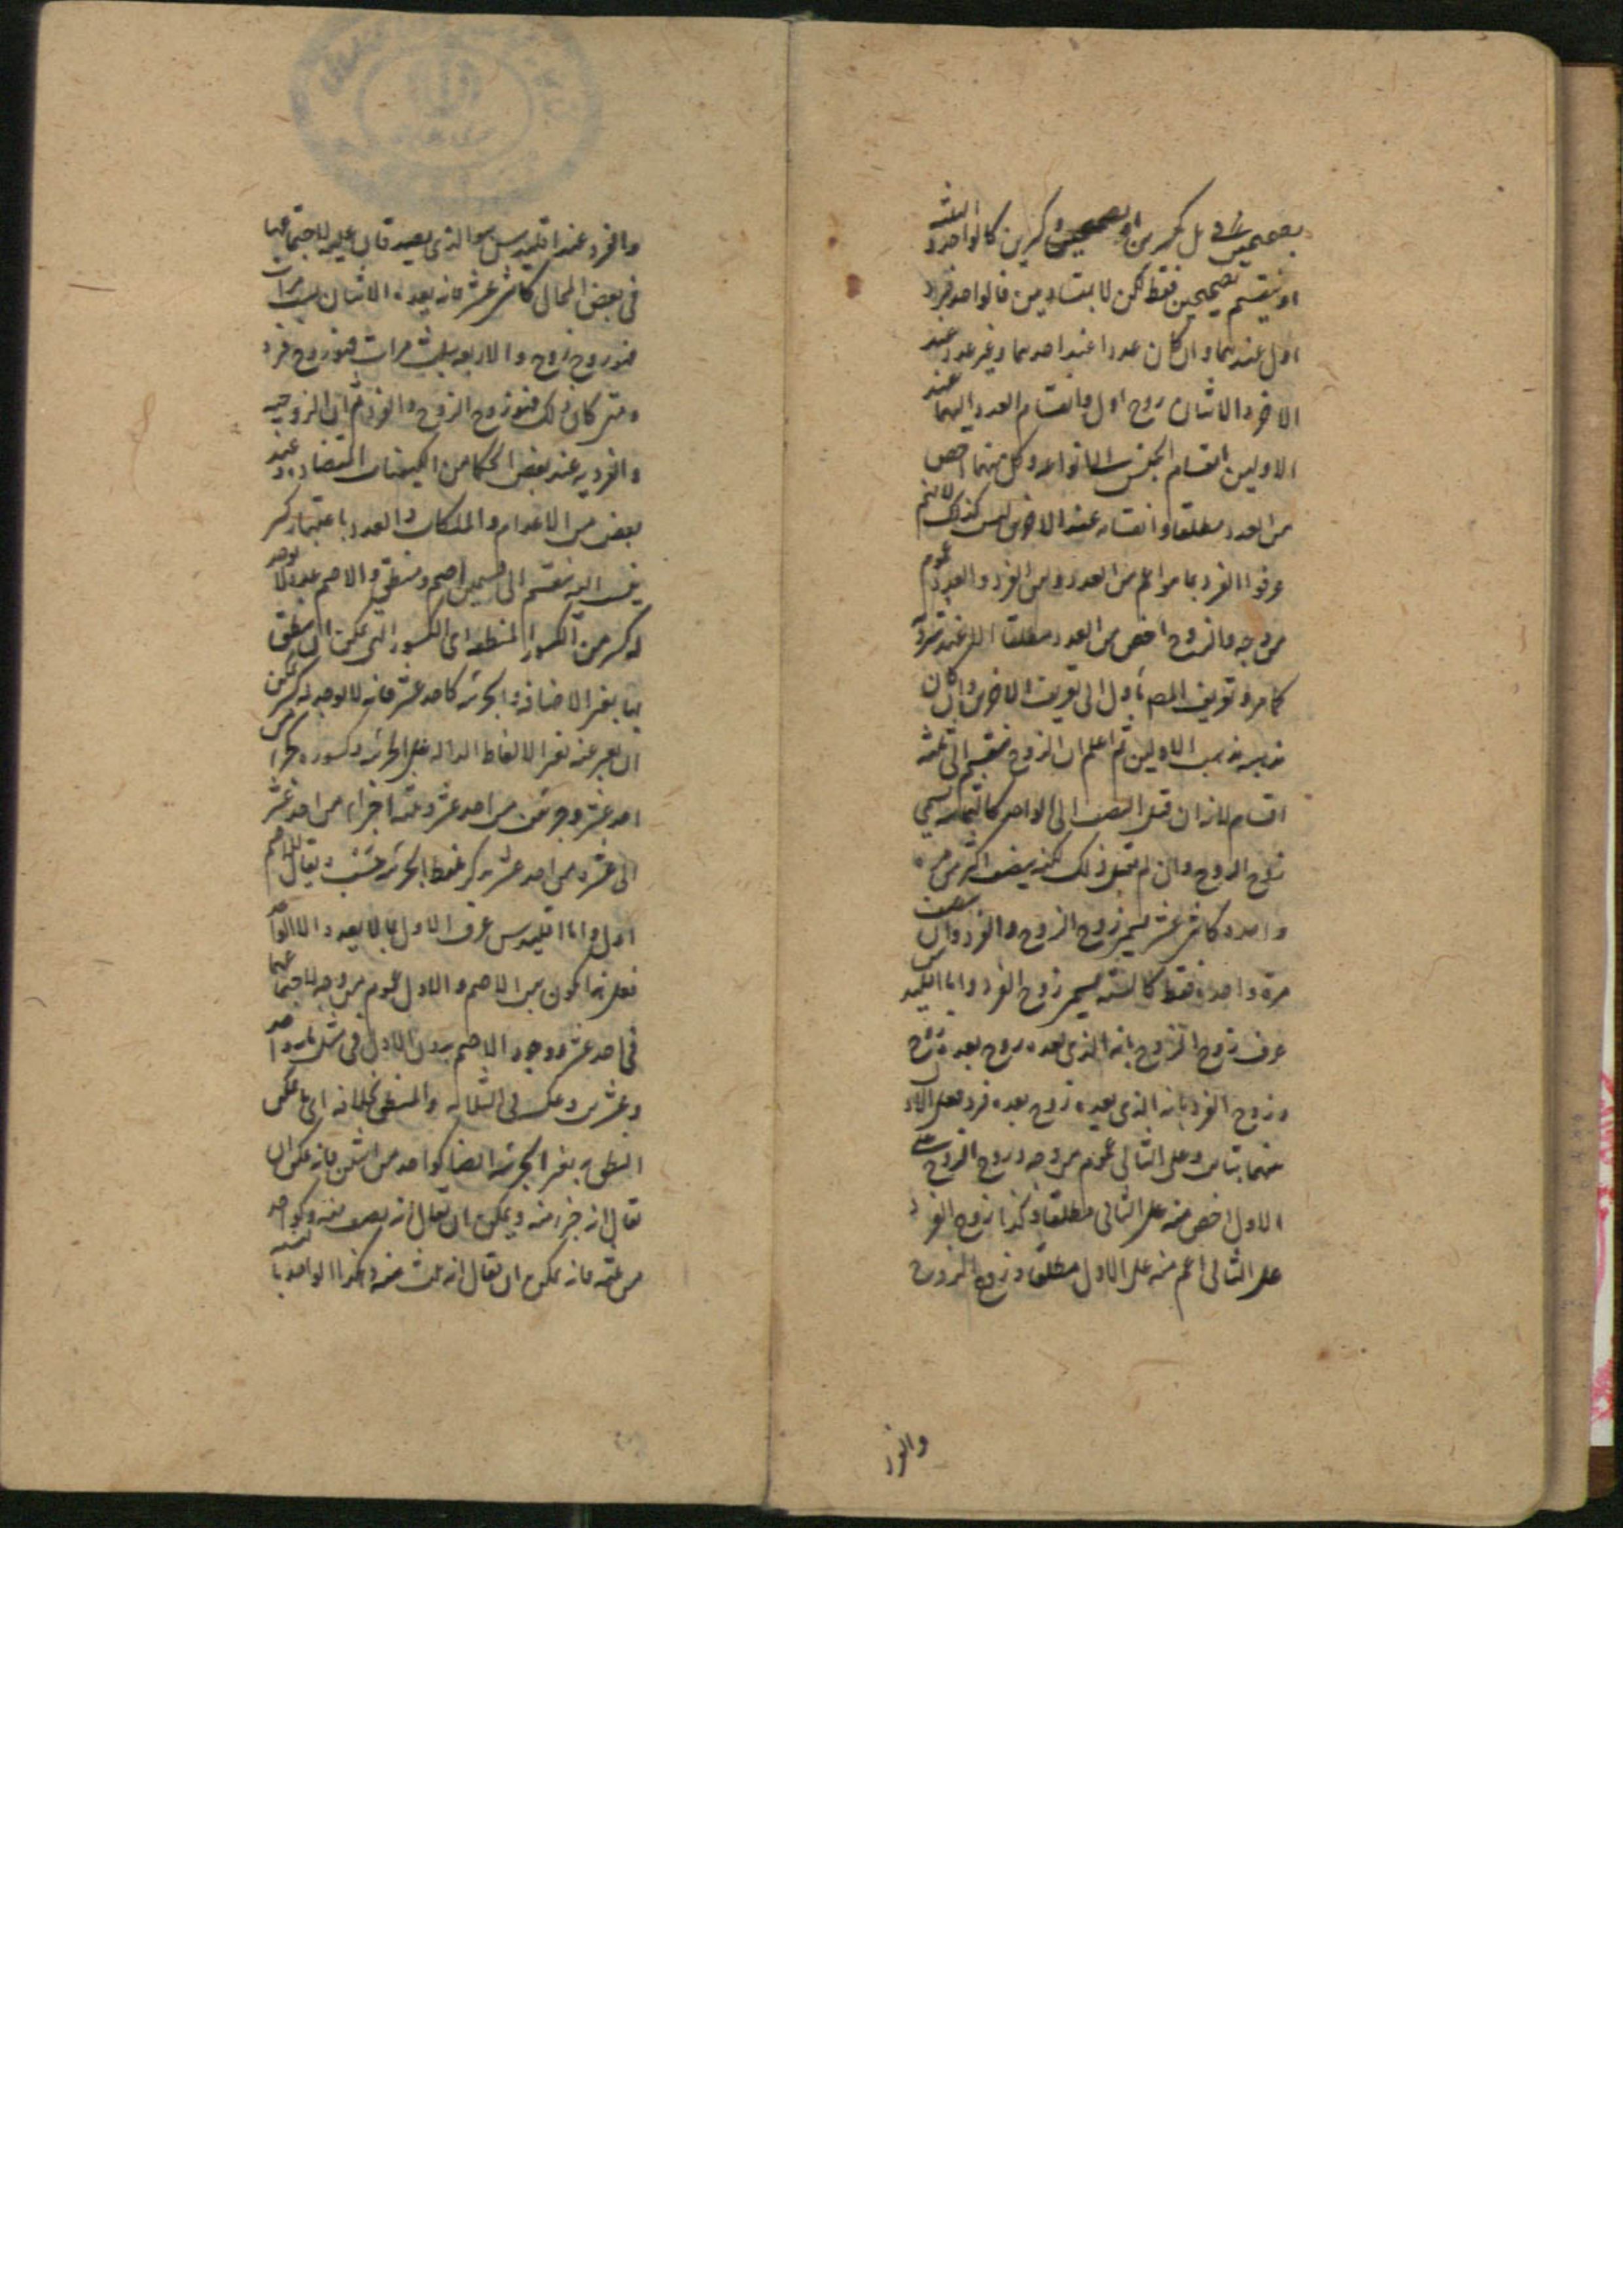 بصحيحين بل بكسرين او بصحيحين وكسرين كالواحد والثلثة
او ينقسم بصحيحين فقط لكن لا بمتساويين فالواحد فرد
اول عندهما وان كان عددا عند احدهما وغير عدد عند
الآخر والاثنان زوج اول وانقسام العدد اليهما عند
الاولين انقسام الجنس الى انواعه وكل منهما اخص
من العدد مطلقا وانقسامه عند الآخرين ليس كذلك لانهم
عرفوا الفرد بما هو اعم من العدد وبين الفرد والعدد عموم
من وجه والزوج اخص من العدد مطلقا
كما مر وتعريف المص يأول الى تعريف الآخرين وان كان
مذهبه مذهب الاولين ثم اعلم ان الزوج ينقسم الى ثلثة
اقسام لانه ان قبل التنصيف الى الواحد كالثمانية يسمى
زوج الزوج وان لم يقبل ذلك لكنه ينصف اكثر من مرة
واحدة كاثنى عشر يسمى زوج الزوج والفرد وان نصف
مرة واحدة فقط كالستة يسمى زوج الفرد واما اقليدس
عرف زوج الزوج بانه الذى يعده زوج بعده زوج
وزوج الفرد بانه الذى يعده زوج بعده فرد فعلى الاول
بينهما تباين وعلى الثانى عموم من وجه وزوج الزوج على
الاول اخص منه على الثانى مطلقا وكذا زوج الفرد
على الثانى اعم منه على الاول مطلقا وزوج الزوج
والفرد
والفرد عند اقليدس هو الذى يصدقان عليه لاجتماعهما
فى بعض المحال كاثنى عشر فانه يعده الاثنان ست مرات
فهو زوج زوج والاربعة بثلث مرات فهو زوج فرد
ومتى كان كذلك فهو زوج الزوج والفرد ثم ان الزوجية
والفردية عند بعض الحكما من الكيفيات المتضادة وعند
بعض من الاعدام والملكات والعدد باعتبار كسر
ينسب اليه ينقسم الى قسمين اصم ومنطق والاصم عدد لا يوجد
له كسر من الكسور المنطقة اى الكسور التى يمكن ان ينطق
بها بغير الاضافة والجزئية كاحد عشر فانه لا يوجد له كسر يمكن
ان يعبر عنه بغير الالفاظ الدالة على الجزئية وكسوره جزء من
احد عشر وجزئين من احد عشر وثلثة اجزاء من احد عشر
الى عشرة من احد عشر بذكر لفظ الجزئية حينئذ ويقال للاصم
اول واما اقليدس عرف الاول بما لا يعده الا الواحد
فعلى هذا يكون بين الاصم والاول عموم من وجه لاجتماعهما
فى احد عشر ووجود الاصم بدون الاول فى مثل مائة واحد
وعشرين وعكسه فى الثلاثة والمنطق بخلافه اى ما يمكن
النطق به بغير الجزئية ايضا كواحد من اثنين فانه يمكن ان
يقال انه جزء منه ويمكن ان يقال انه نصف منه وكواحد
من ثلثة فانه يمكن ان يقال انه ثلث منه وهكذا الواحد بالنسبة